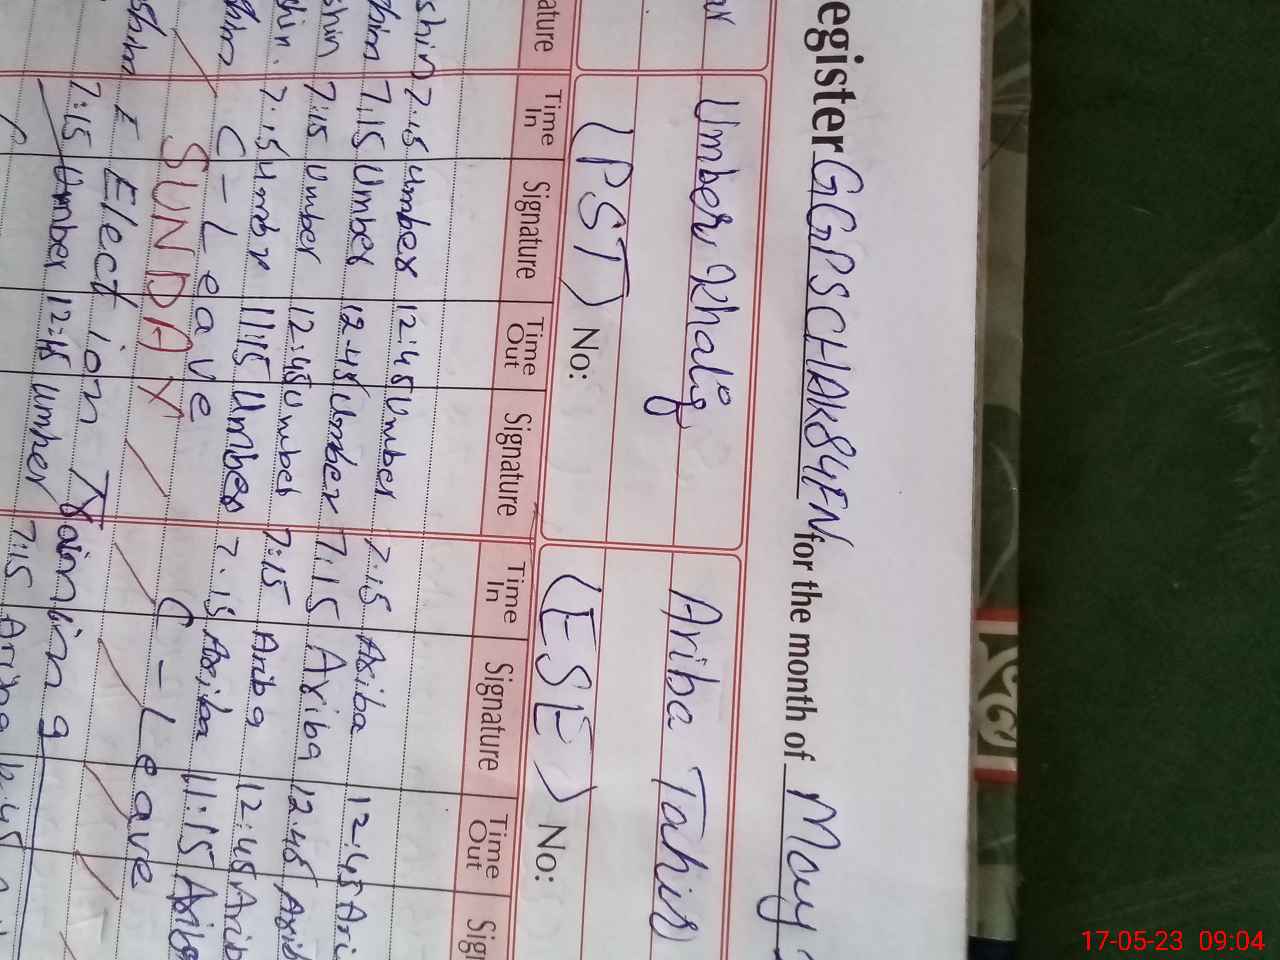 egister GGPS CHAK 84FN for the month of May
Umber Khaliq Ariba Tahir
(PST) No: (ESE) No:
ature Time In Signature Time Out Signature Time In Signature Time Out Sig
shin 7:15 Umber 12:45 Umber 7:15 Ariba 12:45 Ari
shin 7:15 Umber 12:45 Umber 7:15 Ariba 12:45 Arib
shin 7:15 Umber 12:45 Umber 7:15 Ariba 12:45 Arib
hin. 7:15 Umber 11:15 Umber 7:15 Ariba 11:15 Ariba
C-Leave C-Leave
SUNDAY
Election Training
7:15 Umber 12:45 Umber 7:15 Ariba 12:45
17-05-23 09:04